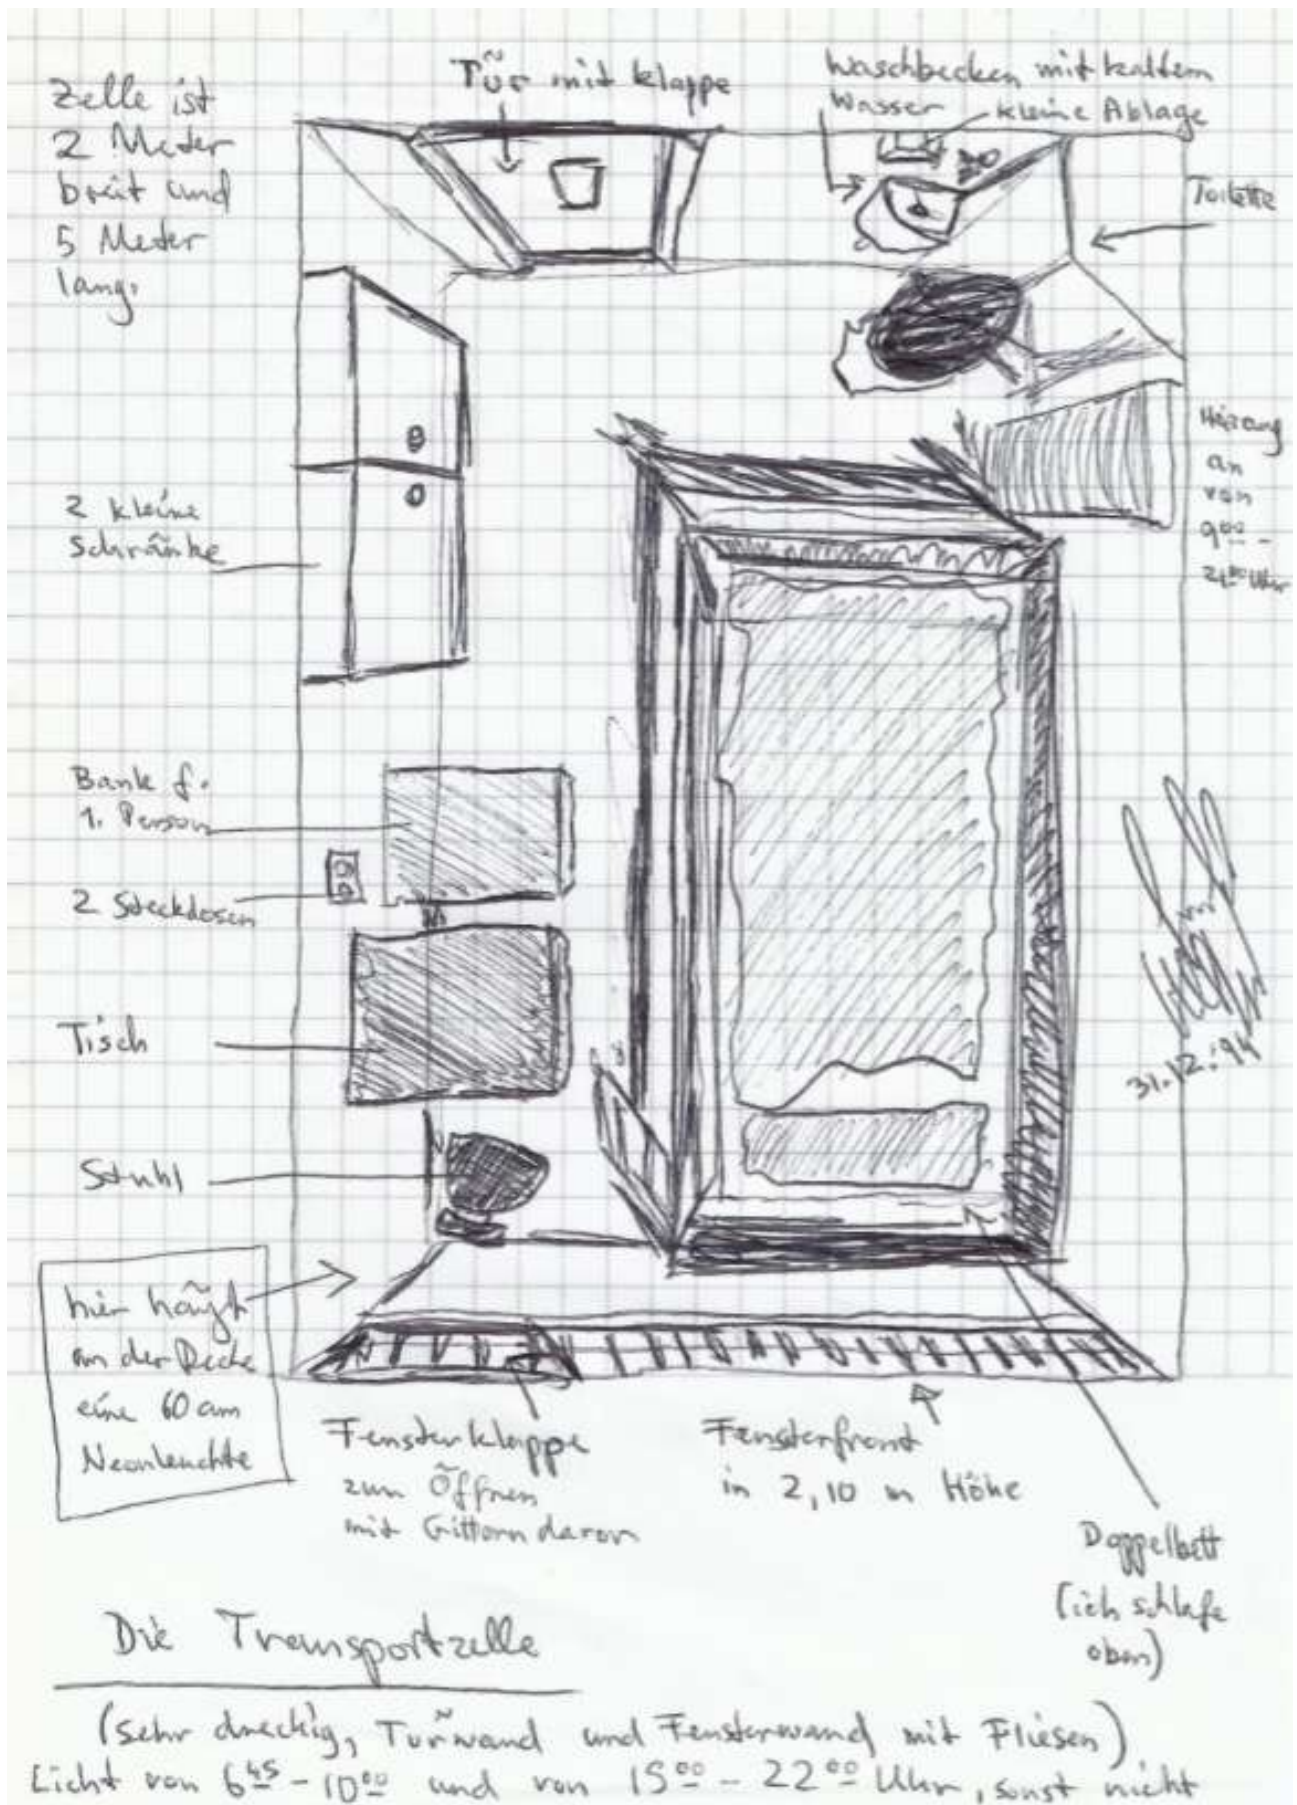 Zelle ist
2 Meter
breit und
5 Meter
lang.
Tür mit Klappe
Waschbecken mit kaltem
Wasser
kleine Ablage
Toilette
Heizung
an
von
9⁰⁰ -
Uhr
2 kleine
Schränke
Bank f.
1. Person
2 Steckdosen
Tisch
Stuhl
31.12.'94
hier hängt
an der Decke
eine 60 cm
Neonleuchte
Fensterklappe
zum Öffnen
mit Gittern davor
Fensterfront
in 2,10 m Höhe
Doppelbett
(ich schlafe
oben)
Die Transportzelle
(sehr dreckig, Türwand und Fensterwand mit Fliesen)
Licht von 6⁴⁵ - 10⁰⁰ und von 15⁰⁰ - 22⁰⁰ Uhr, sonst nicht